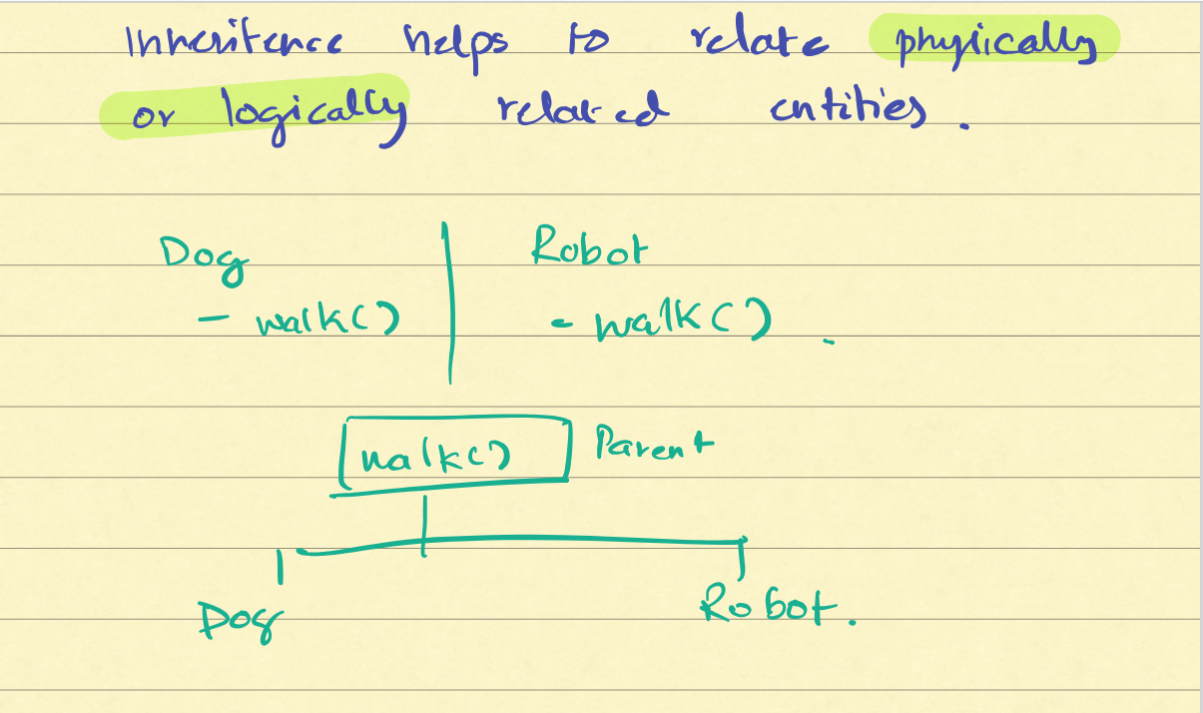 Inheritence helps to relate physically
or logically related entities.
Dog
- walk()
Robot
- walk()
walk() Parent
Dog Robot.